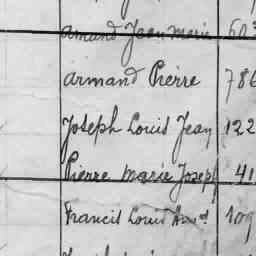 armand Jean Marie 60
armand Pierre 786
Joseph Louis Jean 122
Pierre Marie Joseph 41
Francis Louis Am.d 109